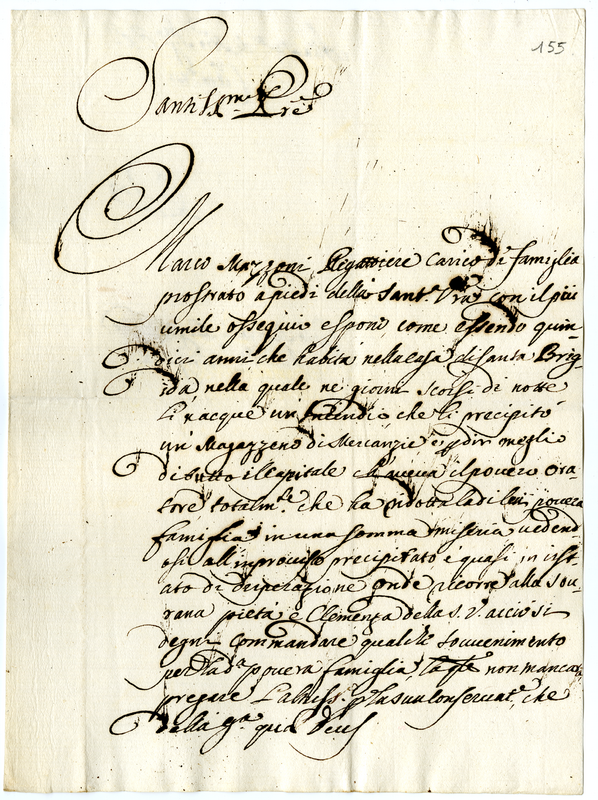 155
Santiss.mo Pre
Marco Mazzoni Regattiere Carico di famiglia
prostrato a piedi della Sant.à Vra con il più
umile ossequio espone, come essendo quin-
dici anni che habita nella casa di santa Brig-
ida nella quale ne giorni scorsi di notte
li nacque un Incendio che li precipitò
un Magazzeno di Mercanzie e p dir meglio
di tutto il Capitale ch'aveva il povero Ora-
tore totalm.te che ha ridotta la di lui povera
famiglia in una somma miseria vedend-
osi all'improviso precipitato e quasi in ist-
ato di disperazione onde ricorre alla sou-
rana pietà e Clemenza della S. V. acciò si
degni Commandare qualche souvenimento
per la d.a povera famiglia, la qle non mancarà
pregare l'Altiss.o p la sua Conservat.e, che
della gra qua Deus